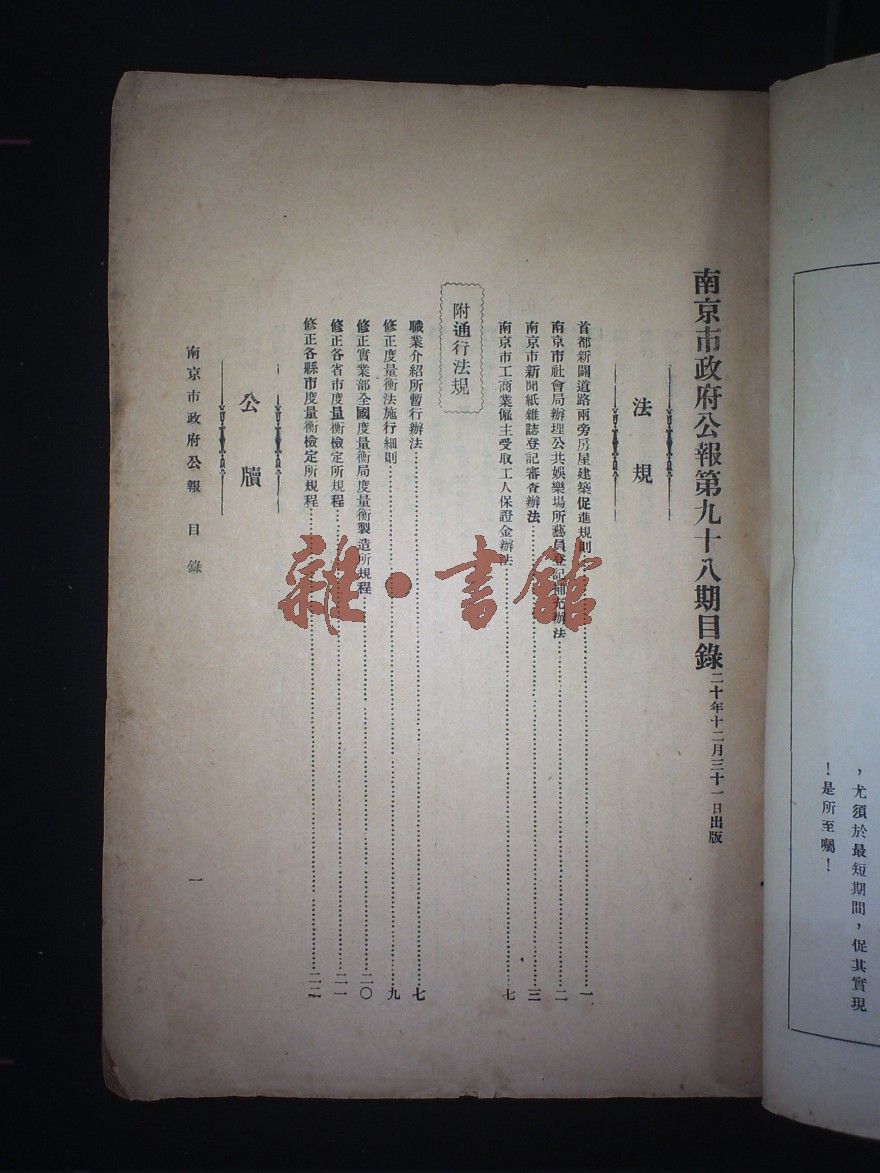 ，尤須於最短期間，促其實現
！是所至囑！
南京市政府公報第九十八期目錄 二十年十二月三十一日出版
法規
首都新闢道路兩旁房屋建築促進規則……一
南京市社會局辦理公共娛樂場所藝員登記補充辦法……二
南京市新聞紙雜誌登記審查辦法……三
南京市工商業僱主受取工人保證金辦法……七
附通行法規
職業介紹所暫行辦法……七
修正度量衡法施行細則……九
修正實業部全國度量衡局度量衡製造所規程……二〇
修正各省市度量衡檢定所規程……二一
修正各縣市度量衡檢定所規程……二二
公牘
南京市政府公報 目錄
一
雜·書館